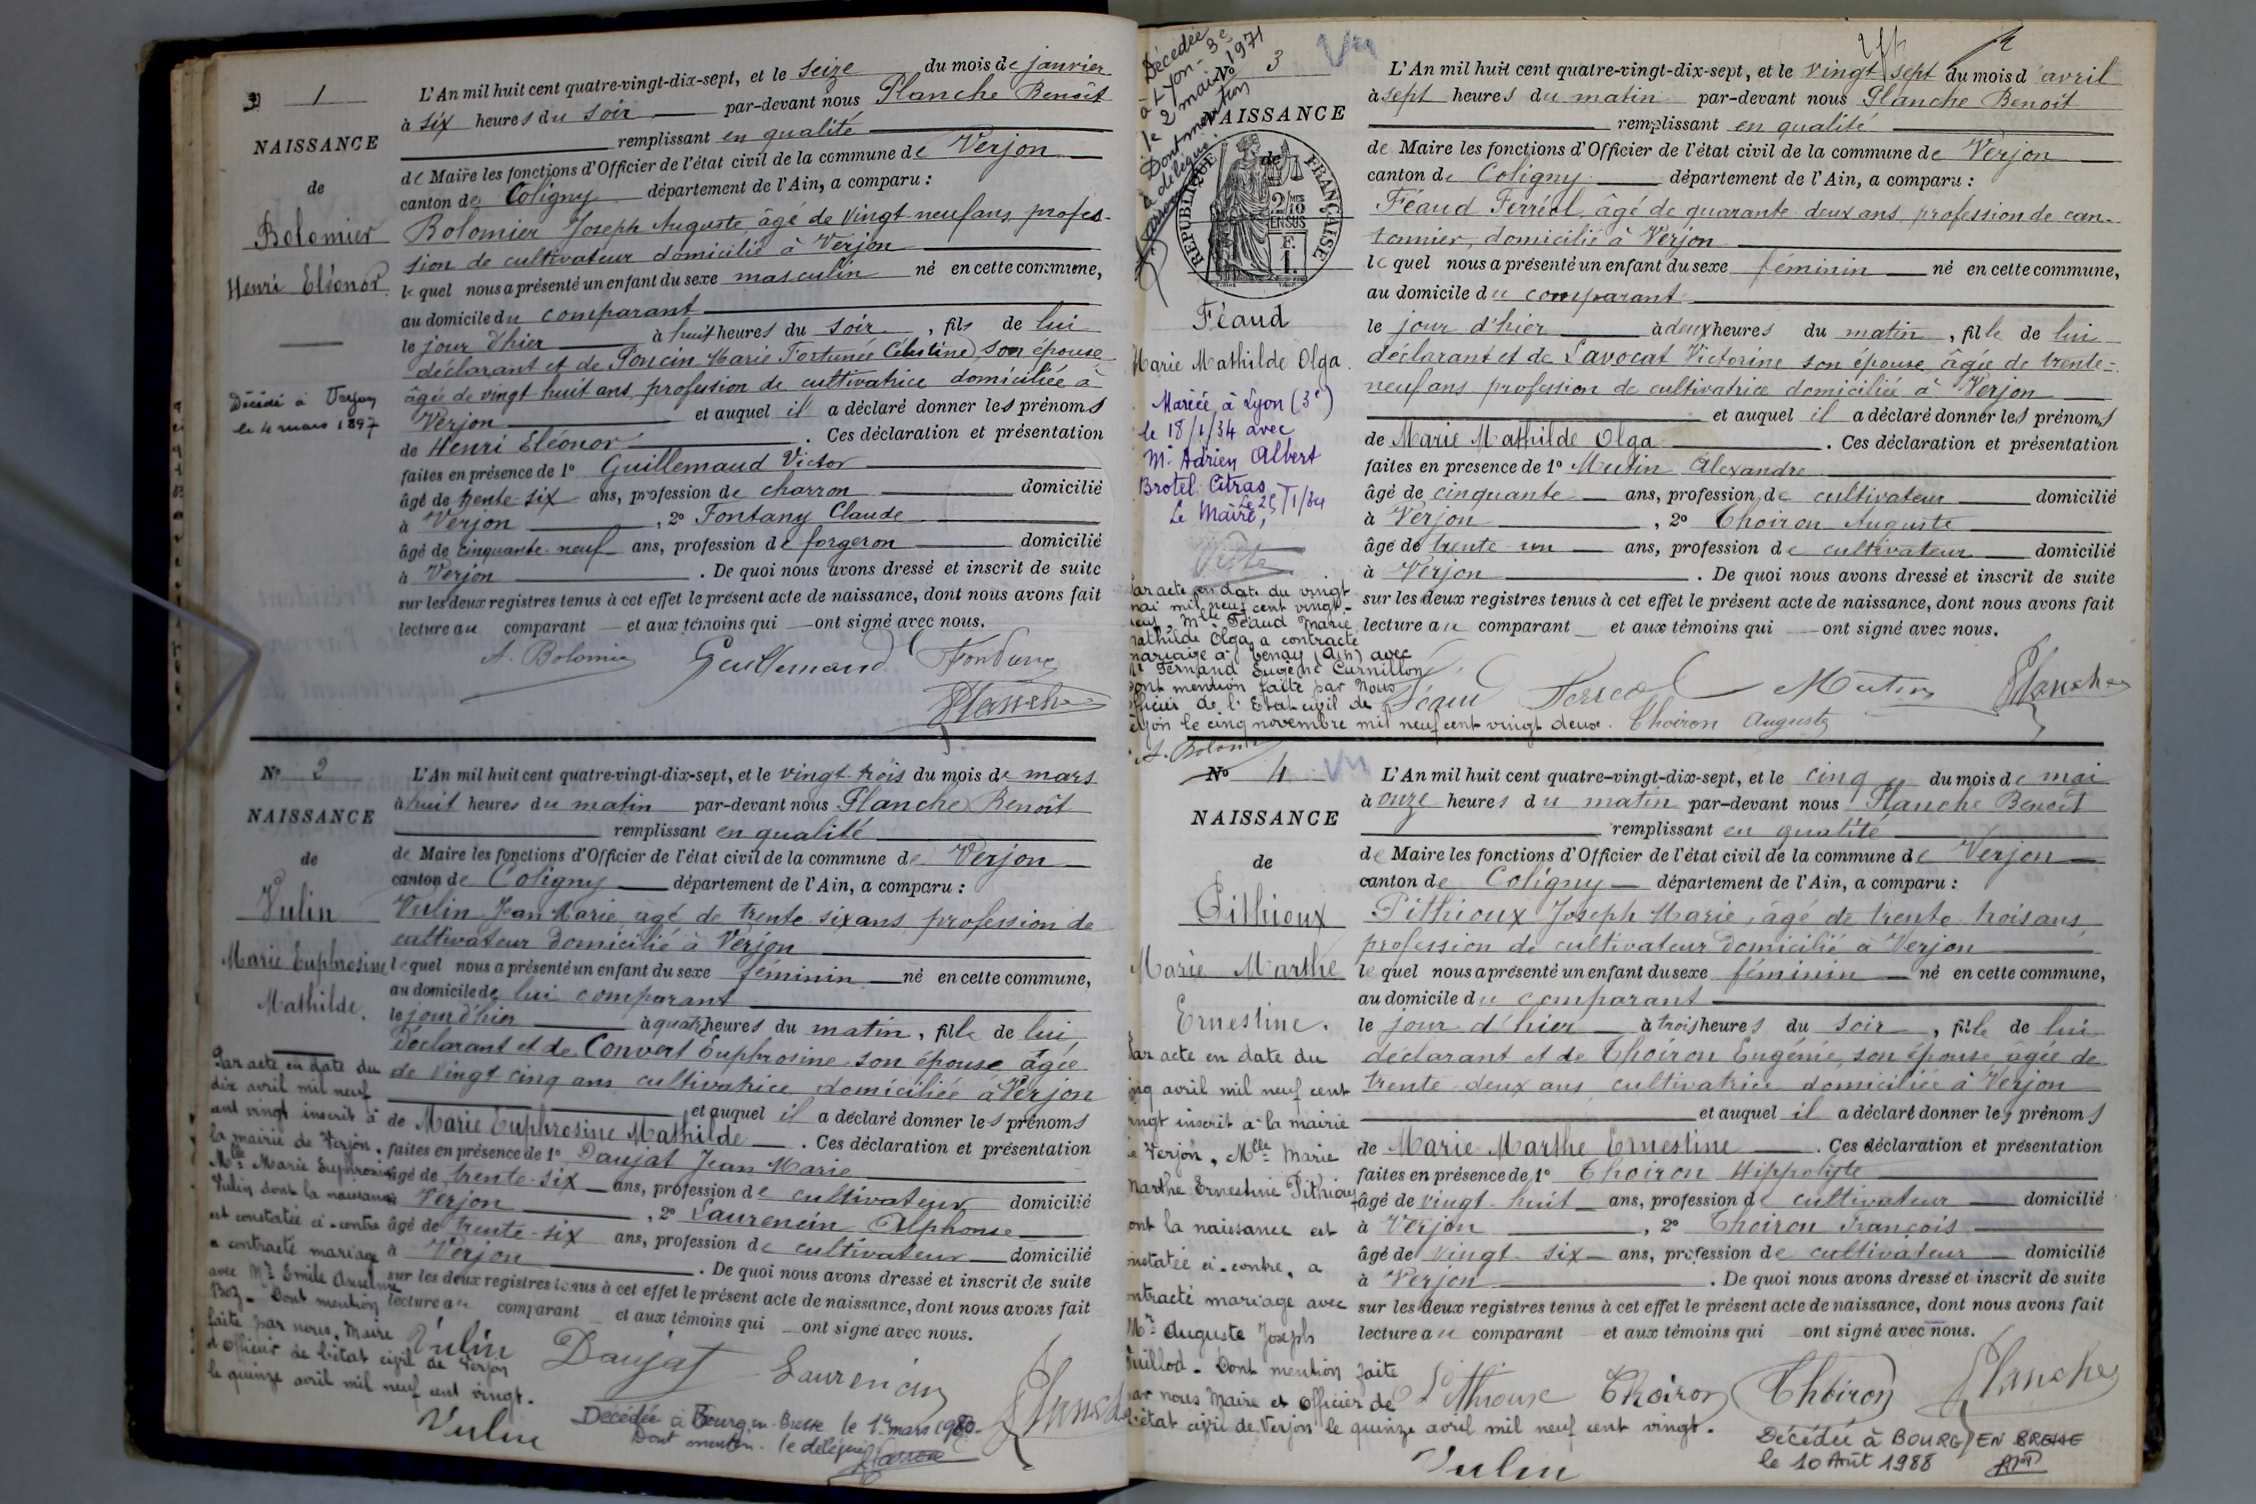 1
NAISSANCE
de
Bolomier
Henri Eléonor.
Décédé à Verjon
le 4 mars 1897
L'An mil huit cent quatre-vingt-dix-sept, et le seize du mois de janvier
à six heures du soir par-devant nous Planche Benoît
remplissant en qualité
de Maire les fonctions d'Officier de l'état civil de la commune de Verjon
canton de Coligny département de l'Ain, a comparu :
Bolomier Joseph Auguste, âgé de vingt neuf ans, profes-
sion de cultivateur domicilié à Verjon
le quel nous a présenté un enfant du sexe masculin né en cette commune,
au domicile du comparant
le jour d'hier à huit heures du soir, fils de lui
déclarant et de Poncin Marie Fortunée Célestine, son épouse
âgée de vingt huit ans, profession de cultivatrice domiciliée à
Verjon et auquel il a déclaré donner les prénoms
de Henri Eléonor. Ces déclaration et présentation
faites en présence de 1° Guillemaud Victor
âgé de trente-six ans, profession de charron domicilié
à Verjon, 2° Fontany Claude
âgé de cinquante-neuf ans, profession de forgeron domicilié
à Verjon. De quoi nous avons dressé et inscrit de suite
sur les deux registres tenus à cet effet le présent acte de naissance, dont nous avons fait
lecture au comparant et aux témoins qui ont signé avec nous.
A. Bolomier Guillemaud
Planche
N° 2
NAISSANCE
de
Vulin
Marie Euphrosine
Mathilde.
Par acte en date du
dix avril mil neuf
cent vingt inscrit à
la mairie de Verjon,
Mlle Marie Euphrosine
Vulin dont la naissance
est constatée ci-contre
a contracté mariage
avec Mr Emile Anselme
Boz. Dont mention
faite par nous, Maire
et officier de l'état civil de Verjon
le quinze avril mil neuf cent vingt.
Vulin
L'An mil huit cent quatre-vingt-dix-sept, et le vingt-trois du mois de mars
à huit heures du matin par-devant nous Planche Benoît
remplissant en qualité
de Maire les fonctions d'Officier de l'état civil de la commune de Verjon
canton de Coligny département de l'Ain, a comparu :
Vulin Jean Marie, âgé de trente six ans, profession de
cultivateur domicilié à Verjon
le quel nous a présenté un enfant du sexe féminin né en cette commune,
au domicile de lui comparant
le jour d'hier à quatre heures du matin, fille de lui
déclarant et de Convert Euphrosine son épouse âgée
de vingt cinq ans cultivatrice domiciliée à Verjon
et auquel il a déclaré donner les prénoms
de Marie Euphrosine Mathilde. Ces déclaration et présentation
faites en présence de 1° Daujat Jean Marie
âgé de trente-six ans, profession de cultivateur domicilié
à Verjon, 2° Laurencin Alphonse
âgé de trente-six ans, profession de cultivateur domicilié
à Verjon. De quoi nous avons dressé et inscrit de suite
sur les deux registres tenus à cet effet le présent acte de naissance, dont nous avons fait
lecture au comparant et aux témoins qui ont signé avec nous.
Vulin Daujat Laurencin Planche
Décédée à Bourg-en-Bresse le 1er mars 1980.
Dont mention. le délégué
Décédée
à Lyon-3e
le 2 mai 1971
Dont mention
Le délégué
N° 3
NAISSANCE
de
RÉPUBLIQUE FRANÇAISE
2/10 MES
EN SUS
F.
1.
Féaud
Marie Mathilde Olga.
Mariée à Lyon (3e)
le 18/1/34 avec
Mr Adrien Albert
Brotel Citras
Le 25/1/34
Le Maire,
Par acte en date du vingt
mai mil neuf cent vingt-
Mlle Féaud Marie
Mathilde Olga a contracté
mariage à Tenay (Ain) avec
Mr Fernand Eugène Curnillon
dont mention faite par Nous
officier de l'Etat civil de
Verjon le cinq novembre mil neuf cent vingt deux.
A. Bolomier
L'An mil huit cent quatre-vingt-dix-sept, et le vingt sept du mois d'avril
à sept heures du matin par-devant nous Planche Benoît
remplissant en qualité
de Maire les fonctions d'Officier de l'état civil de la commune de Verjon
canton de Coligny département de l'Ain, a comparu :
Féaud Ferréol, âgé de quarante deux ans, profession de can-
tonnier, domicilié à Verjon
le quel nous a présenté un enfant du sexe féminin né en cette commune,
au domicile du comparant
le jour d'hier à deux heures du matin, fille de lui
déclarant et de Lavocat Victorine son épouse, âgée de trente-
neuf ans profession de cultivatrice domiciliée à Verjon
et auquel il a déclaré donner les prénoms
de Marie Mathilde Olga. Ces déclaration et présentation
faites en présence de 1° Mutin Alexandre
âgé de cinquante ans, profession de cultivateur domicilié
à Verjon, 2° Thoiron Auguste
âgé de trente un ans, profession de cultivateur domicilié
à Verjon. De quoi nous avons dressé et inscrit de suite
sur les deux registres tenus à cet effet le présent acte de naissance, dont nous avons fait
lecture au comparant et aux témoins qui ont signé avec nous.
Féaud Ferréol Mutin Planche
Thoiron Auguste
N° 4
NAISSANCE
de
Pithioux
Marie Marthe
Ernestine.
Par acte en date du
cinq avril mil neuf cent
vingt inscrit à la mairie
de Verjon, Mlle Marie
Marthe Ernestine Pithioux
dont la naissance est
constatée ci-contre, a
contracté mariage avec
Mr Auguste Joseph
Dont mention faite
par nous Maire et Officier de
l'état civil de Verjon le quinze avril mil neuf cent vingt.
Vulin
L'An mil huit cent quatre-vingt-dix-sept, et le cinq du mois de mai
à onze heures du matin par-devant nous Planche Benoît
remplissant en qualité
de Maire les fonctions d'Officier de l'état civil de la commune de Verjon
canton de Coligny département de l'Ain, a comparu :
Pithioux Joseph Marie, âgé de trente trois ans,
profession de cultivateur domicilié à Verjon
le quel nous a présenté un enfant du sexe féminin né en cette commune,
au domicile du comparant
le jour d'hier à trois heures du soir, fille de lui
déclarant et de Thoiron Eugénie, son épouse, âgée de
trente-deux ans cultivatrice domiciliée à Verjon
et auquel il a déclaré donner les prénoms
de Marie Marthe Ernestine. Ces déclaration et présentation
faites en présence de 1° Thoiron Hippolyte
âgé de vingt-huit ans, profession de cultivateur domicilié
à Verjon, 2° Thoiron François
âgé de vingt-six ans, profession de cultivateur domicilié
à Verjon. De quoi nous avons dressé et inscrit de suite
sur les deux registres tenus à cet effet le présent acte de naissance, dont nous avons fait
lecture au comparant et aux témoins qui ont signé avec nous.
Pithioux Thoiron Thoiron Planche
Décédée à BOURG EN BRESSE
le 10 Août 1988